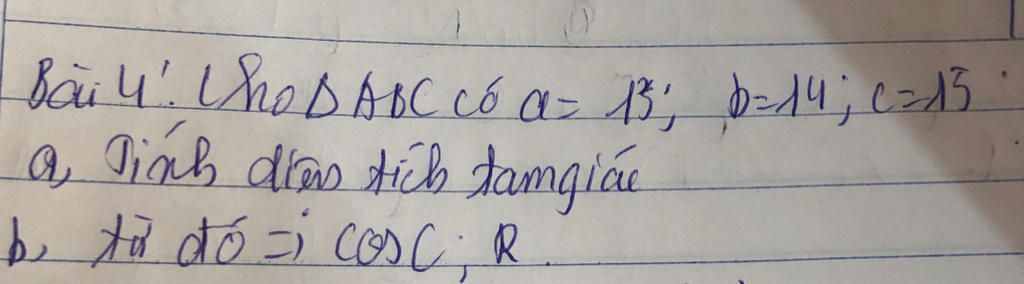 Bài 4: Cho Δ ABC có a = 13; b=14; c=15
a, Tính diện tích tam giác
b, từ đó => cosC; R.